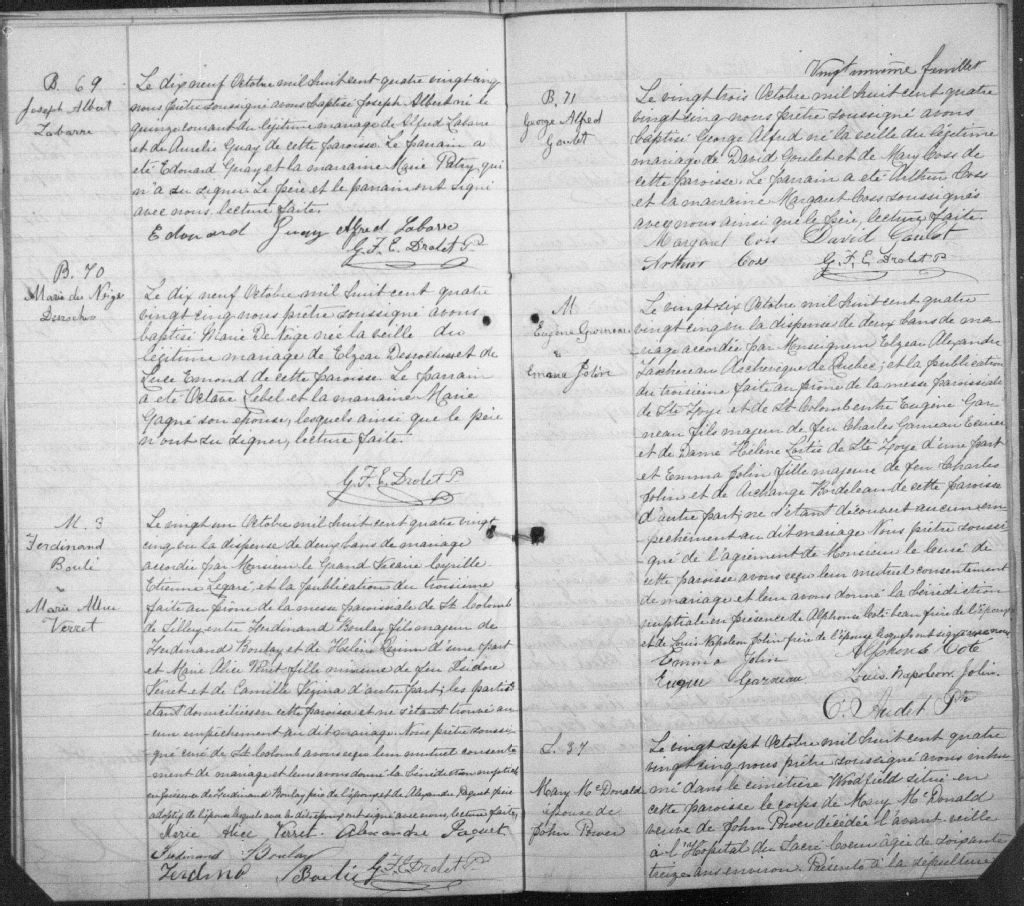 B. 69
Joseph Albert
Labarre
Le dix neuf Octobre mil huit cent quatre vingt cinq
nous prêtre soussigné avons baptisé Joseph Albert né le
quinze courant du légitime mariage de Alfred Labarre
et de Aurelie Guay de cette paroisse. Le parrain a
été Edouard Guay et la marraine Marie Patry, qui
n'a su signer. Le père et le parrain ont signé
avec nous, lecture faite.
Edouard Guay Alfred Labarre
G. F. E. Drolet P.
B. 70
Marie des Neiges
Durocher
Le dix neuf Octobre mil huit cent quatre
vingt cinq nous prêtre soussigné avons
baptisé Marie De Neige née la veille du
légitime mariage de Elzear Desrochers et de
Luce Emond de cette paroisse. Le parrain
a été Octave Lebel et la marraine Marie
Gagné son épouse, lesquels ainsi que le père
n'ont su signer, lecture faite.
G. F. E. Drolet P.
M. 3
Ferdinand
Boulé
&
Marie Alice
Verret
Le vingt un Octobre mil huit cent quatre vingt
cinq vu la dispense de deux bans de mariage
accordée par Monsieur le Grand Vicaire Cyrille
Etienne Legaré, et la publication du troisième
faite au prône de la messe paroissiale de St Colomb
de Sillery, entre Ferdinand Boulay fils majeur de
Ferdinand Boulay et de Helène d'une part
et Marie Alice Verret fille mineure de feu Isidore
Verret et de Camille d'autre part; les parties
étant domiciliées en cette paroisse et ne s'étant trouvé au
cun empêchement au dit mariage. Nous prêtre soussi-
gné curé de St Colomb avons reçu leur mutuel consente
ment de mariage et leur avons donné la bénédiction nuptiale
en présence de Ferdinand Boulay père de l'époux et de Alexandre Paquet père
adoptif de l'épouse lesquels avec les dits époux ont signé avec nous, lecture faite.
Marie Alice Verret. Alexandre Paquet
Ferdinand Boulay
Ferdina Boulié G. F. E. Drolet P.
Vingt unième feuillet
B. 71
George Alfred
Goulet
Le vingt trois Octobre mil huit cent quatre
vingt cinq nous prêtre soussigné avons
baptisé George Alfred né la veille du légitime
mariage de David Goulet et de Mary Coss de
cette paroisse. Le parrain a été Arthur Coss
et la marraine Margaret Coss soussignés
avec nous ainsi que le père, lecture faite.
Margaret Coss David Goulet
Arthur Coss G. F. E. Drolet P.
M
Eugène Garneau
&
Emma Jolin
Le vingt six Octobre mil huit cent quatre
vingt cinq vu la dispense de deux bans de ma-
riage accordée par Monseigneur Elzear Alexandre
Taschereau Archevêque de Québec; et la publication
du troisième faite au prône de la messe paroissiale
de Ste Foye et de St Colomb entre Eugène Gar-
neau fils majeur de feu Charles Garneau
et de Dame Hélène Lortie de Ste Foye d'une part
et Emma Jolin fille majeure de feu Charles
Jolin et de Archange Bordeleau de cette paroisse
d'autre part, ne s'étant découvert aucun em-
pêchement au dit mariage Nous prêtre soussi-
gné de l'agrément de Monsieur le Curé de
cette paroisse avons reçu leur mutuel consentement
de mariage et leur avons donné la bénédiction
nuptiale en présence de Alphonse Coté beau frère de l'époux
et de Louis Napoléon Jolin frère de l'épouse lesquels ont signé avec nous
Emma Jolin Alphonse Cote
Eugene Garneau Louis. Napoleon Jolin.
C. Audet Ptr
S. 37
Mary McDonald
épouse de
John Power
Le vingt sept Octobre mil huit cent quatre
vingt cinq nous prêtre soussigné avons inhu
mé dans le cimetière Woodfield situé en
cette paroisse le corps de Mary McDonald
veuve de John Power décédée l'avant veille
à l'Hopital du Sacré Coeur âgée de soixante
treize ans environ. Présents à la sépulture